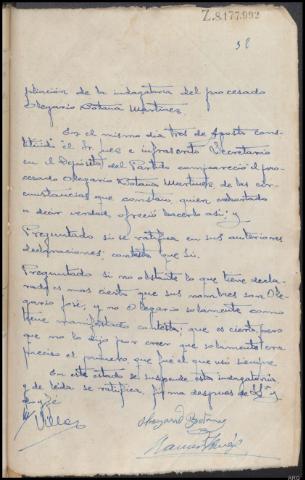 Z.8177.992
38
pliación de la indagatoria del procesado
Olegario Dotana Martinez.
En el mismo dia tres de Agosto cons-
tituido el Sr. Juez e infrascrito Secretario
en el Deposito del Partido compareció el pro-
cesado Olegario Dotana Martinez de las cir-
cunstancias que constan, quien exhortado
a decir verdad, ofreció hacerlo asi; y
Preguntado si se ratifica en sus anteriores
declaraciones; contesta que si.
Preguntado si no obstante lo que tiene decla-
rado es mas cierto que sus nombres son Ole-
gario José, y no Olegario solamente como
tiene manifestado contesta: que es cierto, pero
que no lo dijo por creer que solamente era
preciso el primero que fué el que usó siempre
En este estado se suspende esta indagatoria
y de leida se ratifica, firma despues de S.Sª y
doy fé